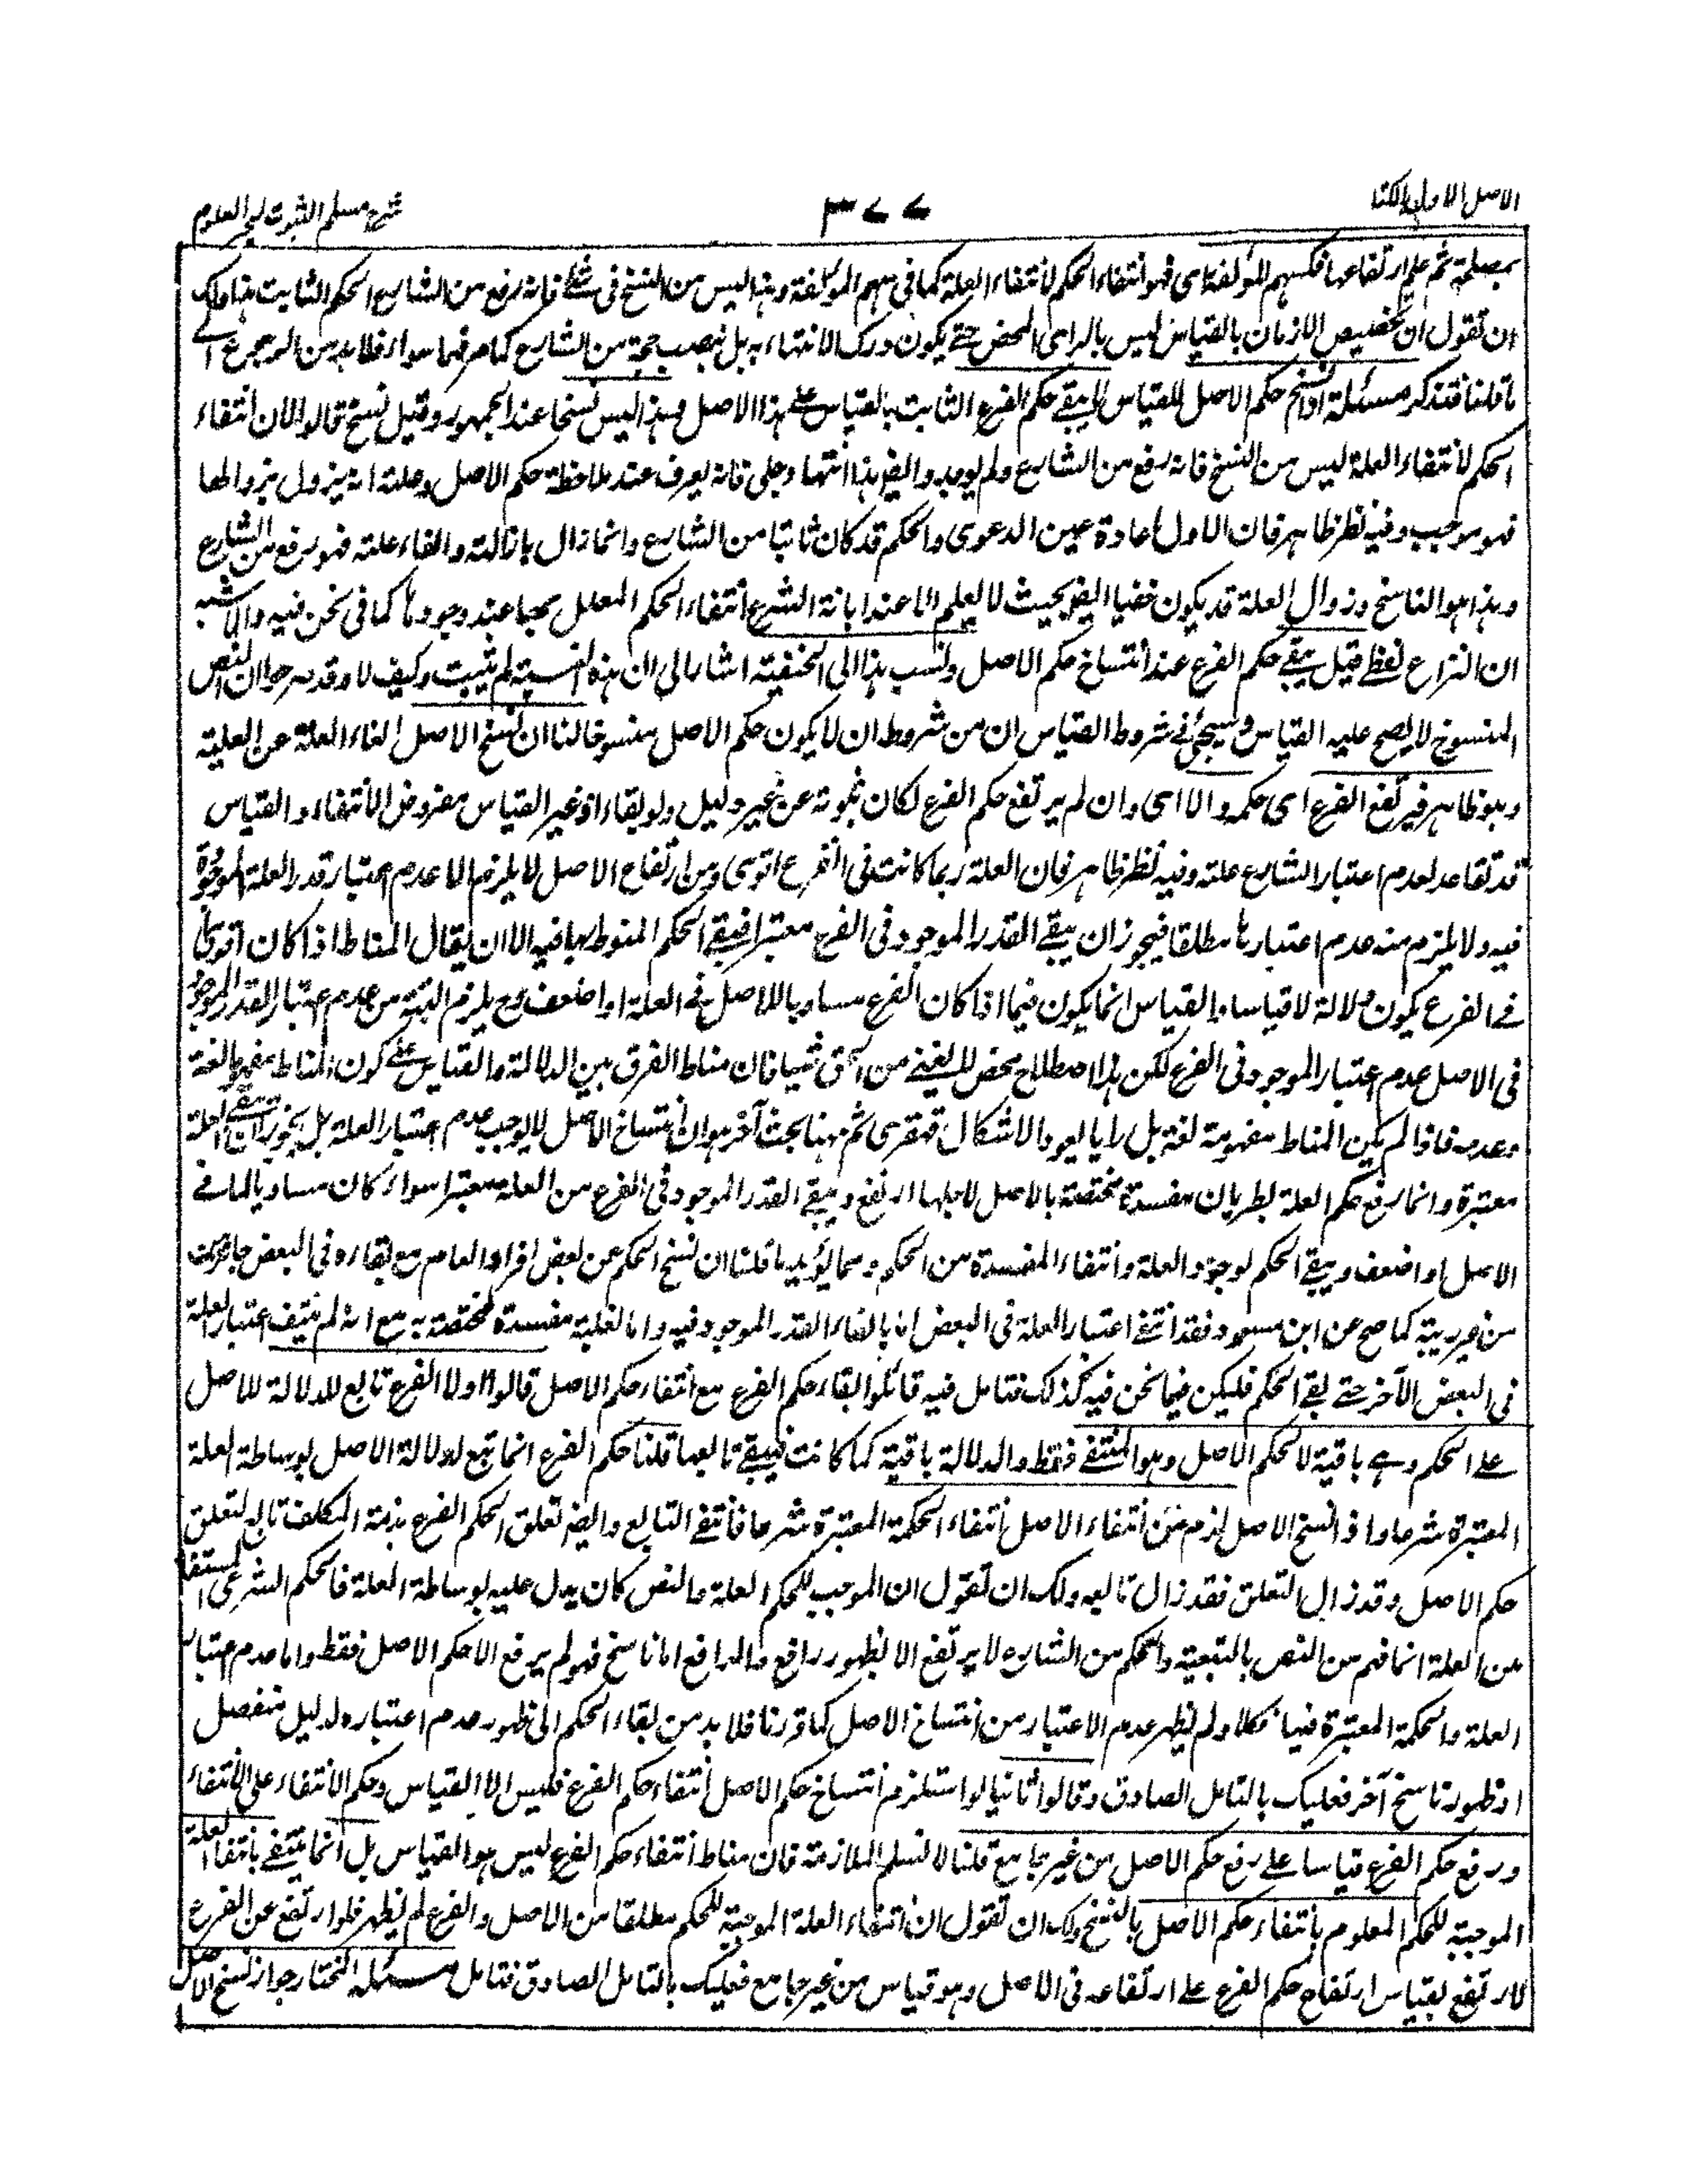 الاصل الاول الكتاب
٣٧٧
شرح مسلم الثبوت لبحر العلوم
بمصلحة ثم علم ارتفاعها فكسهم المؤلفة اى فهو انتفاء الحكم لانتفاء العلة كما فى سهم المؤلفة وهذا ليس من النسخ فى شئ فانه رفع من الشارع الحكم الثابت هذا ولك
ان تقول ان تخصيص الازمان بالقياس ليس بالراى المحض حتى يكون درك الانتهاء به بل بنصب حجة من الشارع كما مر فهما سواء فلا بد من الرجوع الى
ما قلنا فتذكر مسئلة اذا نسخ حكم الاصل للقياس لا يبقى حكم الفرع الثابت بالقياس على هذا الاصل وهذا ليس نسخا عند الجمهور وقيل نسخ قالوا لان انتفاء
الحكم لانتفاء العلة ليس من النسخ فانه رفع من الشارع ولم يوجد وايضا هذا انتهاء وجلى فانه يعرف عند ملاحظة حكم الاصل وعلته انه يزول بزوالها
فهو موجب وفيه نظر ظاهر فان الاول اعادة عين الدعوى والحكم قد كان ثابتا من الشارع وانما زال بازالته والغاء علته فهو رفع من الشارع
وهذا هو الناسخ وزوال العلة قد يكون خفيا ايضا بحيث لا يعلم الا عند ابانة الشرع انتفاء الحكم المعلل بها عند وجودها كما فى نحن فيه والاشبه
ان النزاع لفظى قيل يبقى حكم الفرع عند انتساخ حكم الاصل ونسب هذا الى الحنفية اشار الى ان هذه النسبة لم يثبت وكيف لا وقد صرحوا ان النص
المنسوخ لا يصح عليه القياس وسيجئ فى شروط القياس ان من شروط ان لا يكون حكم الاصل منسوخا لنا ان نسخ الاصل الغاء العلة عن العلية
وهو ظاهر فيرتفع الفرع اى حكمه والا اى وان لم يرتفع حكم الفرع لكان ثبوته عن غير دليل ولو بقاء اذ غير القياس مفروض الانتفاء والقياس
قد تقاعد لعدم اعتبار الشارع علته وفيه نظر ظاهر فان العلة ربما كانت فى الفرع اقوى ومن ارتفاع الاصل لا يلزم الا عدم اعتبار قدر العلة الموجودة
فيه ولا يلزم منه عدم اعتبارها مطلقا فيجوز ان يبقى القدر الموجود فى الفرع معتبرا فيبقى الحكم المنوط بها فيه الا ان يقال المناط اذا كان اقوى
فى الفرع يكون دلالة لا قياسا والقياس انما يكون فيما اذا كان الفرع مساويا للاصل فى العلة او اضعف وح يلزم البتة من عدم اعتبار القدر الموجود
فى الاصل عدم اعتبار الموجود فى الفرع لكن هذا اصطلاح محض لا يغنى من الحق شيئا فان مناط الفرق بين الدلالة والقياس على كون المناط مفهوما لغة
وعدمه فاذا لم يكن المناط مفهومة لغة بل رايا يعود الاشكال قهقرى ثم ههنا بحث آخر هو ان انتساخ الاصل لا يوجب عدم اعتبار العلة بل يجوز ان يبقى العلة
معتبرة وانما رفع حكم العلة لطريان مفسدة مختصة بالاصل لاجلها ارتفع ويبقى القدر الموجود فى الفرع من العلة معتبرا سواء كان مساويا لما فى
الاصل او اضعف ويبقى الحكم لوجود العلة وانتفاء المفسدة من الحكم ومما يؤيد ما قلنا ان نسخ الحكم عن بعض افراد العام مع بقاءه فى البعض جائز
من غير ريبة كما صح عن ابن مسعود فقد انتفى اعتبار العلة فى البعض اما بالغاء القدر الموجود فيه واما لغلبة مفسدة مختصة به مع انه لم ينتف اعتبار العلة
فى البعض الآخر حتى بقى الحكم فليكن فيما نحن فيه كذلك فتامل فيه قائلوا ابقاء حكم الفرع مع انتفاء حكم الاصل قالوا اولا الفرع تابع للدلالة للاصل
على الحكم وهى باقية لا لحكم الاصل وهو المنتفى فقط والدلالة باقية كما كانت فيبقى تابعها قلنا حكم الفرع انما تبع لدلالة الاصل بوساطة العلة
المعتبرة شرعا واذ انتسخ الاصل لزم من انتفاء الاصل انتفاء الحكمة المعتبرة شرعا فانتفى التابع وايضا تعلق الحكم الفرع بذمة المكلف تابع لتعلق
حكم الاصل وقد زال التعلق فقد زال تابعه ولك ان تقول ان الموجب للحكم العلة والنص كان يدل عليه بوساطة العلة فالحكم الشرعى المستفاد
من العلة انما فهم من النص بالتبعية والحكم من الشارع لا يرتفع الا لظهور رافع والرافع اما ناسخ فهو لم يرفع الا حكم الاصل فقط واما عدم اعتبار
العلة والحكمة المعتبرة فيها فكلا ولم يظهر عدم الاعتبار من انتساخ الاصل كما قررنا فلا بد من بقاء الحكم الى ظهور عدم اعتباره لدليل منفصل
او ظهور ناسخ آخر فعليك بالتامل الصادق وقالوا ثانيا لو استلزم انتساخ حكم الاصل انتفاء حكم الفرع فليس الا القياس وحكم الانتفاء على الانتفاء
ورفع حكم الفرع قياسا على رفع حكم الاصل من غير جامع قلنا لا نسلم الملازمة فان مناط انتفاء حكم الفرع ليس هو القياس بل انما ينتفى بانتفاء العلة
الموجبة للحكم المعلوم بانتفاء حكم الاصل بالنسخ ولك ان تقول ان انتفاء العلة الموجبة للحكم مطلقا من الاصل والفرع لم يظهر فلو ارتفع عن الفرع
لارتفع بقياس ارتفاع حكم الفرع على ارتفاعه فى الاصل وهو قياس من غير جامع فعليك بالتامل الصادق فتامل مسئلة المختار جواز نسخ الاصل